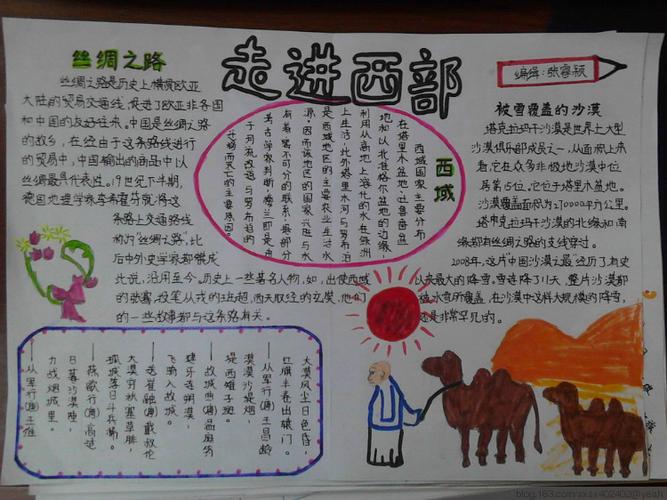 走进西部
编辑：张睿颖
丝绸之路
丝绸之路是历史上横贯欧亚
大陆的贸易交通线，促进了欧亚非各国
和中国的友好往来。中国是丝绸之路
的故乡，在经由这条路线进行
的贸易中，中国输出的商品中以
丝绸最具代表性。19世纪下半期，
德国地理学家李希霍芬就将这
条陆上交通路线
称为“丝绸之路”，此
后中外史学家都赞成
此说，沿用至今。历史上一些著名人物，如，出使西域
的张骞，投笔从戎的班超，西天取经的玄奘，他们
的一些故事都与这条路有关。
西域
西域国家主要分布
在塔里木盆地、吐鲁番盆
地和以北准格尔盆地的边缘，
利用从高地上溶化的水在绿洲
上生活，此外塔里木河与罗布泊
是西域地区的主要农业生活水
源，因而该地区的国家兴旺与水
有着密不可分的联系，据部分
考古学家判断，楼兰即是由
于河流改道与罗布泊的
迁移而灭亡的主要原因。
被雪覆盖的沙漠
塔克拉玛干沙漠是世界上大型
沙漠俱乐部成员之一，从面积上来
看，它在众多非极地沙漠中位
居第15位，它位于塔里木盆地。
沙漠覆盖面积为270000平方公里。
塔克拉玛干沙漠的北缘和南
缘都有丝绸之路的支线穿过。
2008年，这片中国沙漠最经历了有史
以来最大的降雪，雪连降了11天，整片沙漠都
被冰雪所覆盖，在沙漠中这样大规模的降雪，
还是非常罕见的。
大漠风尘日色昏，
红旗半卷出辕门。
——从军行(唐)王昌龄
漠漠沙堤烟，
堤西雉子斑。
——故城曲(唐)温庭筠
建牙连朔漠，
飞骑入故城。
——送崔融(唐)戴叔伦
大漠穷秋塞草腓，
孤城落日斗兵稀。
——燕歌行(唐)高适
日暮沙漠陲，
力战烟尘里。
——从军行(唐)王维